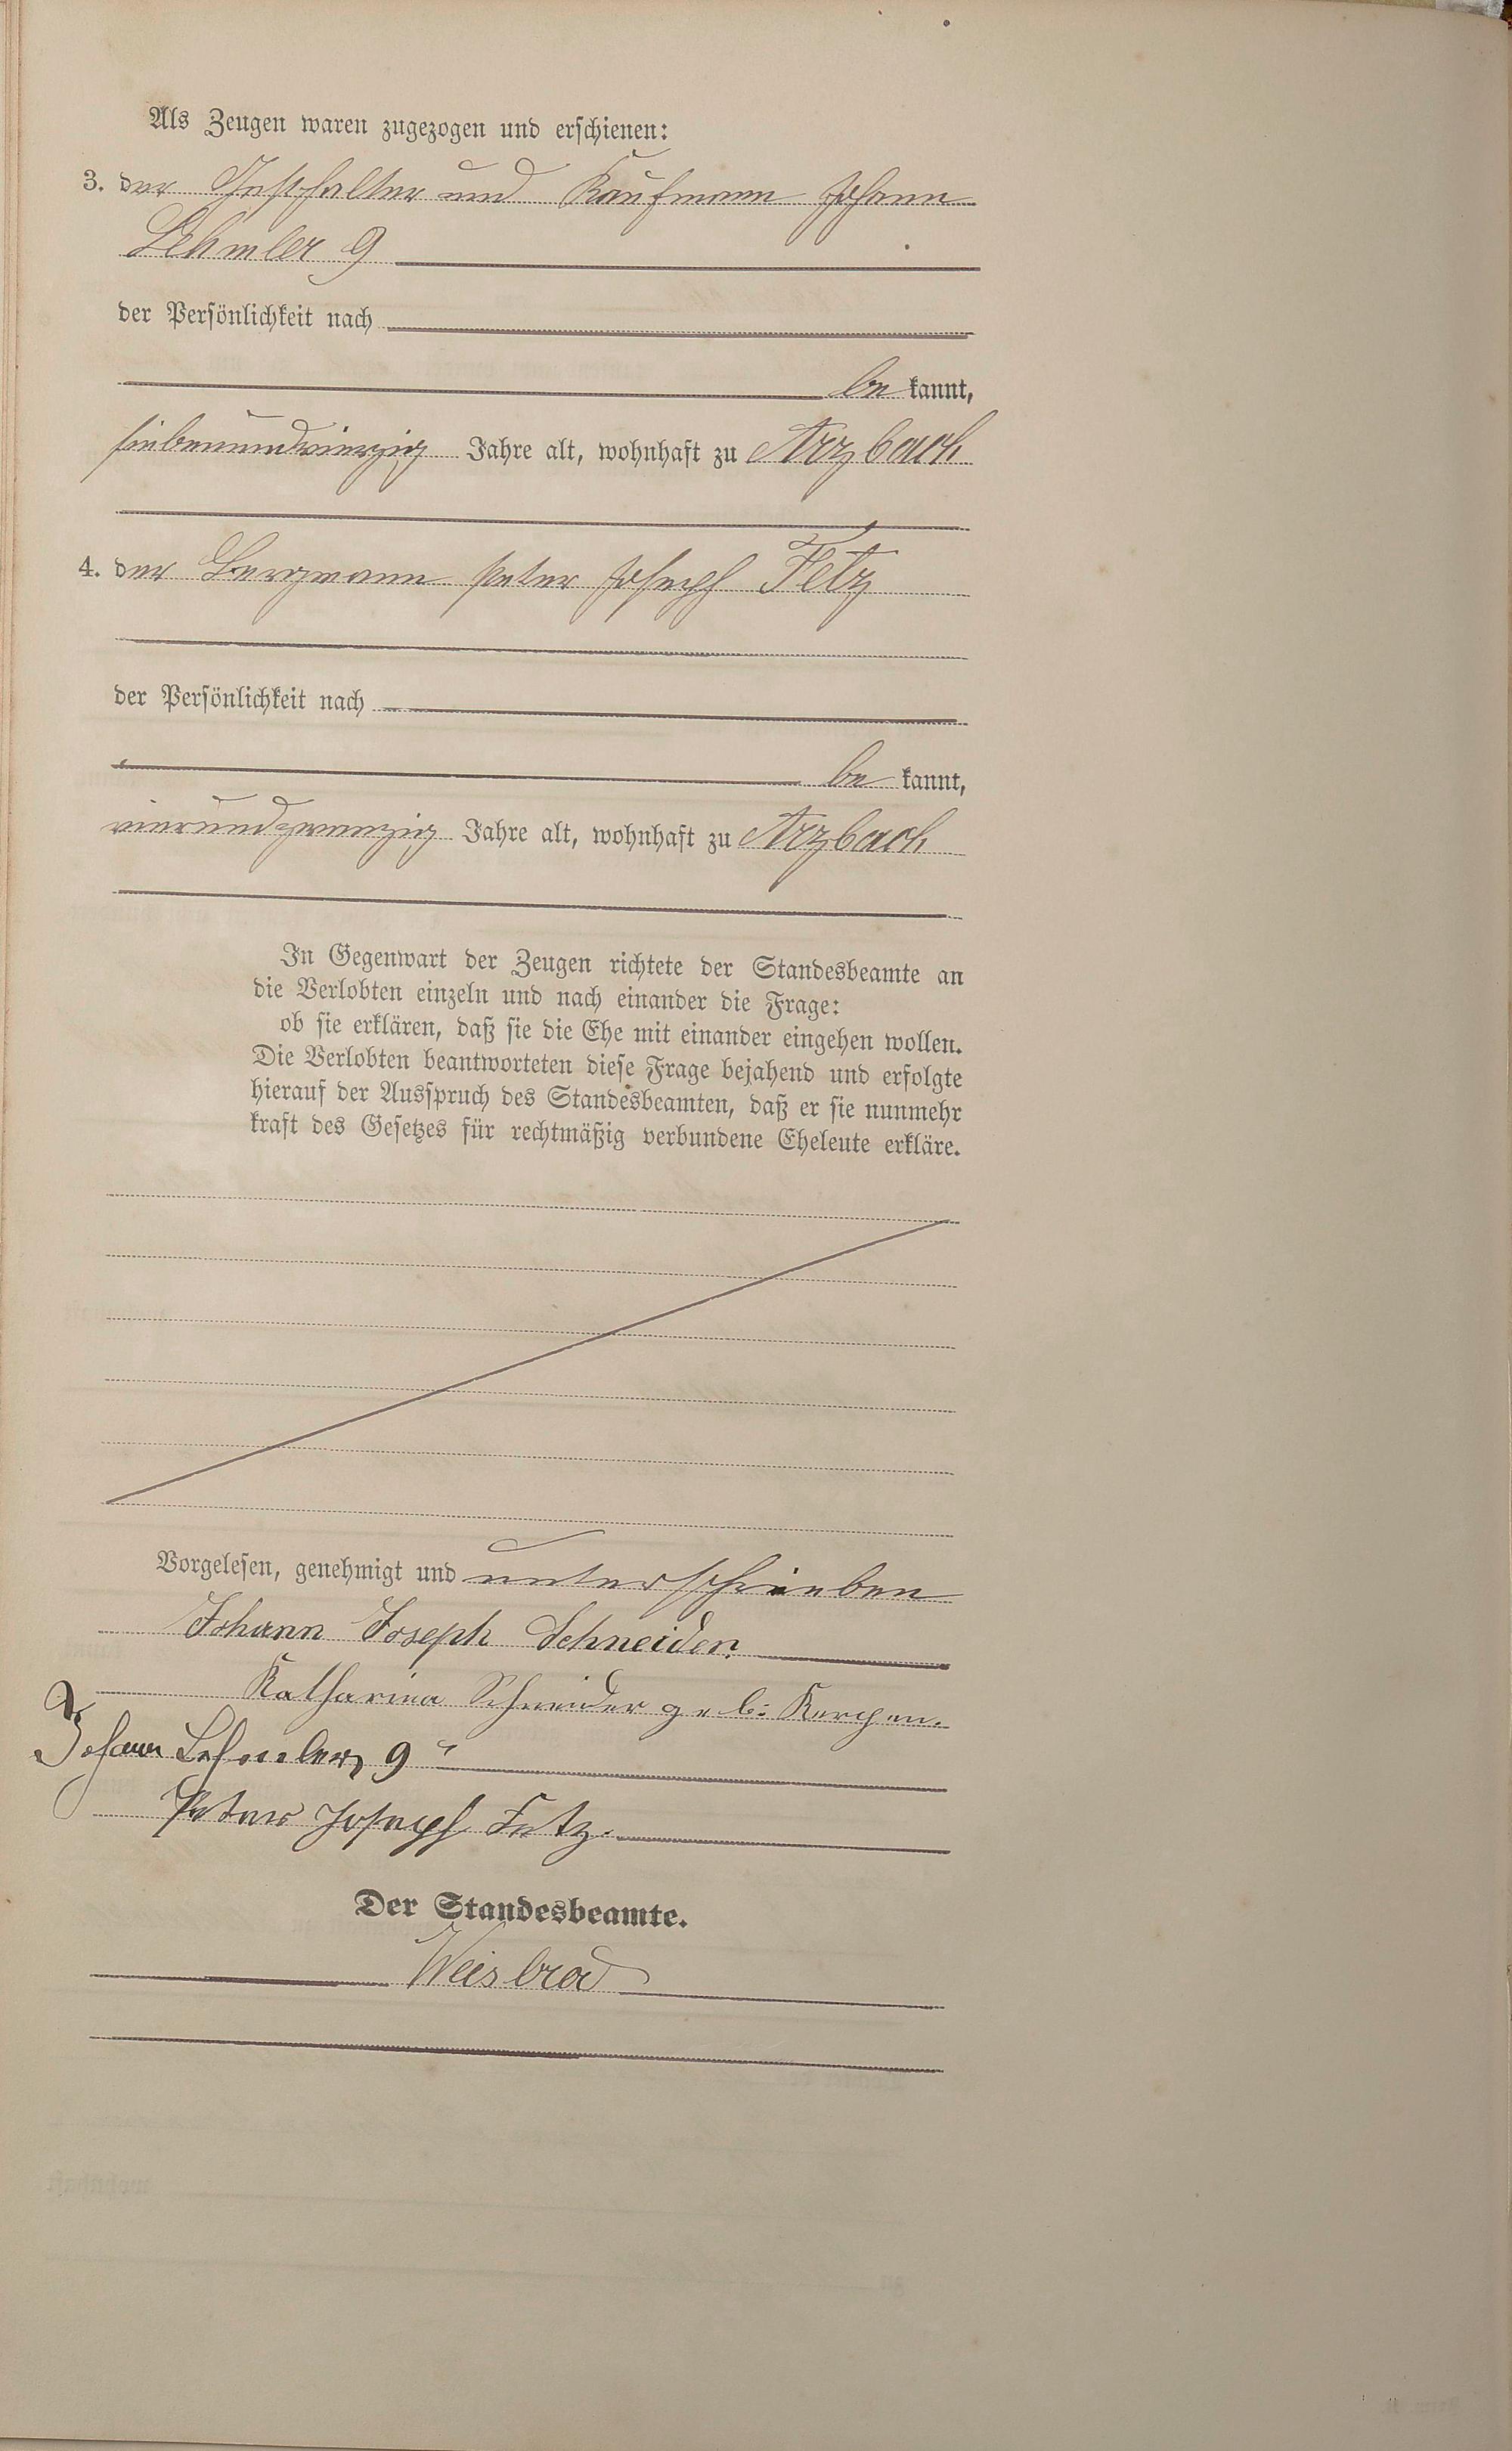 Als Zeugen waren zugezogen und erschienen:
3. der Posthalter und Kaufmann Johann
Lehmler 9
der Persönlichkeit nach
be kannt,
siebenundvierzig Jahre alt, wohnhaft zu Arzbach
4. der Bergmann Peter Joseph Fetz
der Persönlichkeit nach
be kannt,
vierundzwanzig Jahre alt, wohnhaft zu Arzbach
In Gegenwart der Zeugen richtete der Standesbeamte an
die Verlobten einzeln und nach einander die Frage:
ob sie erklären, daß sie die Ehe mit einander eingehen wollen.
Die Verlobten beantworteten diese Frage bejahend und erfolgte
hierauf der Ausspruch des Standesbeamten, daß er sie nunmehr
kraft des Gesetzes für rechtmäßig verbundene Eheleute erkläre.
Vorgelesen, genehmigt und unterschrieben
Johann Joseph Schneider.
Katharina Schneider geb: Kerchen.
Johann Lehmler 9
Peter Joseph Fetz.
Der Standesbeamte.
Weisbrod